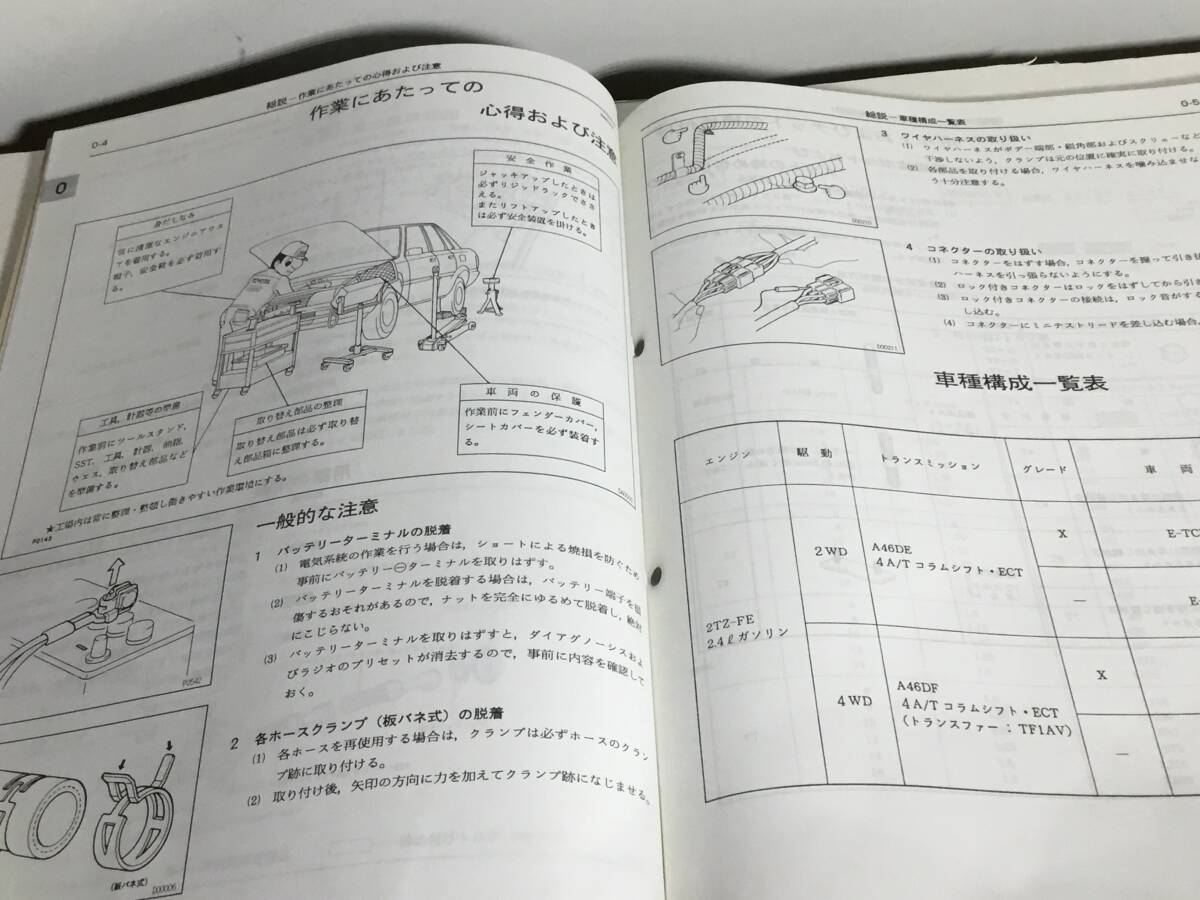 0-4
総説－作業にあたっての心得および注意
作業にあたっての
心得および注意
0
身だしなみ
帽子、安全靴を必ず着用す
る。
安全作業
ジャッキアップしたときは
必ずリジッドラックでささ
える。
またリフトアップしたとき
は必ず安全装置を掛ける。
工具，計器等の準備
作業前にツールスタンド，
SST，工具，計器，油脂，
ウエス，取り替え部品など
を準備する。
取り替え部品の整理
取り替え部品は必ず取り替
え部品箱に整理する。
車両の保護
作業前にフェンダーカバー，
シートカバーを必ず装着す
る。
★工場内は常に整理・整頓し働きやすい作業環境にする。
P0143
一般的な注意
1 バッテリーターミナルの脱着
(1) 電気系統の作業を行う場合は，ショートによる焼損を防ぐため
事前にバッテリー⊖ターミナルを取りはずす。
(2) バッテリーターミナルを脱着する場合は，バッテリー端子を損
傷するおそれがあるので，ナットを完全にゆるめて脱着し，絶対
にこじらない。
(3) バッテリーターミナルを取りはずすと，ダイアグノーシスおよ
びラジオのプリセットが消去するので，事前に内容を確認して
おく。
P0542
2 各ホースクランプ（板バネ式）の脱着
(1) 各ホースを再使用する場合は，クランプは必ずホースのクラン
プ跡に取り付ける。
(2) 取り付け後，矢印の方向に力を加えてクランプ跡になじませる。
(板バネ式)
D00006
総説－車種構成一覧表
0-5
3 ワイヤハーネスの取り扱い
(1) ワイヤハーネスがボデー端部・鋭角部およびスクリューなど
干渉しないよう，クランプは元の位置に確実に取り付ける。
(2) 各部品を取り付ける場合，ワイヤハーネスを噛み込ませな
う十分注意する。
D00210
4 コネクターの取り扱い
(1) コネクターをはずす場合，コネクターを握って引き抜
ハーネスを引っ張らないようにする。
(2) ロック付きコネクターはロックをはずしてから引き
(3) ロック付きコネクターの接続は，ロック音がす
し込む。
(4) コネクターにミニテストリードを差し込む場合，
D00211
車種構成一覧表
エンジン 駆動 トランスミッション グレード 車両
2TZ-FE
2.4ℓガソリン
2WD
A46DE
4A/Tコラムシフト・ECT
X
E-TC
—
E-
4WD
A46DF
4A/Tコラムシフト・ECT
(トランスファー：TF1AV)
X
—